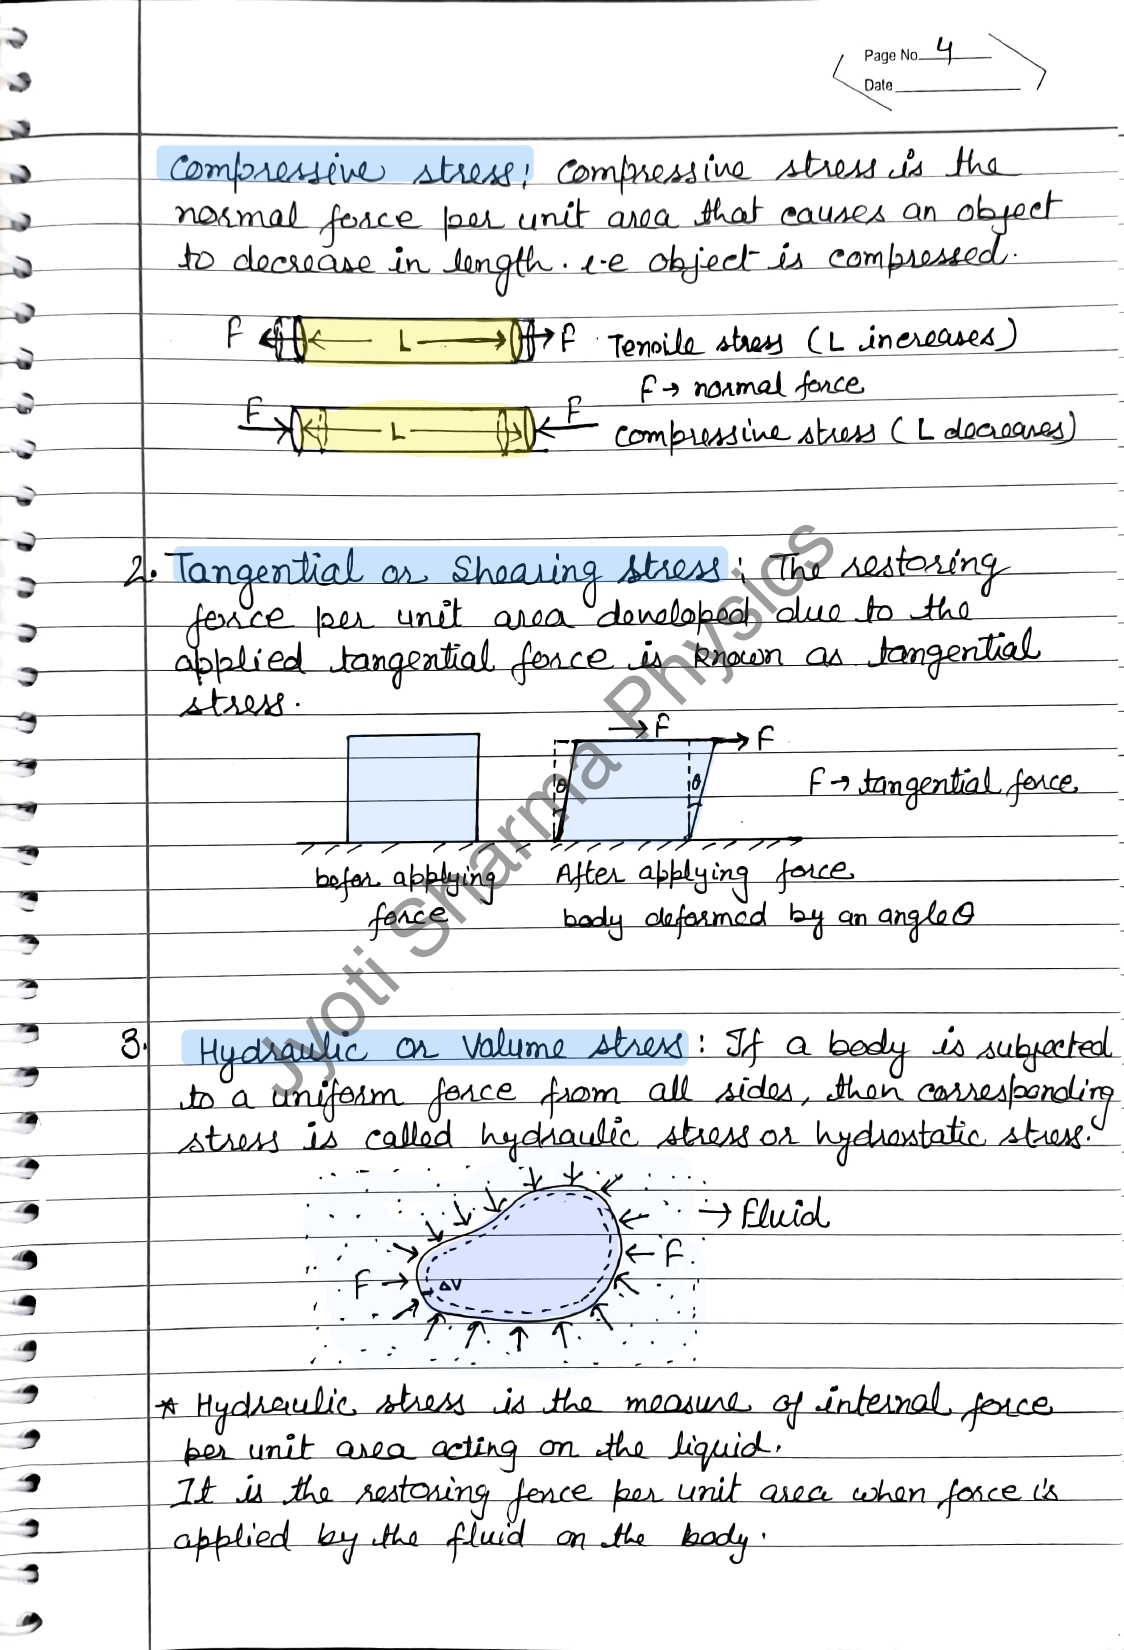 Page No. 4
Date
Compressive stress: Compressive stress is the
normal force per unit area that causes an object
to decrease in length. i.e object is compressed.
F L F Tensile stress (L increases)
F → normal force
F L F compressive stress (L decreases)
2. Tangential or Shearing stress: The restoring
force per unit area developed due to the
applied tangential force is known as tangential
stress.
→ F
→ F
θ θ F → tangential force
befor applying After applying force
force body deformed by an angle θ
3. Hydraulic or Volume stress: If a body is subjected
to a uniform force from all sides, then corresponding
stress is called hydraulic stress or hydrostatic stress.
→ fluid
F ΔV F
* Hydraulic stress is the measure of internal force
per unit area acting on the liquid.
It is the restoring force per unit area when force is
applied by the fluid on the body.
Jyoti Sharma Physics